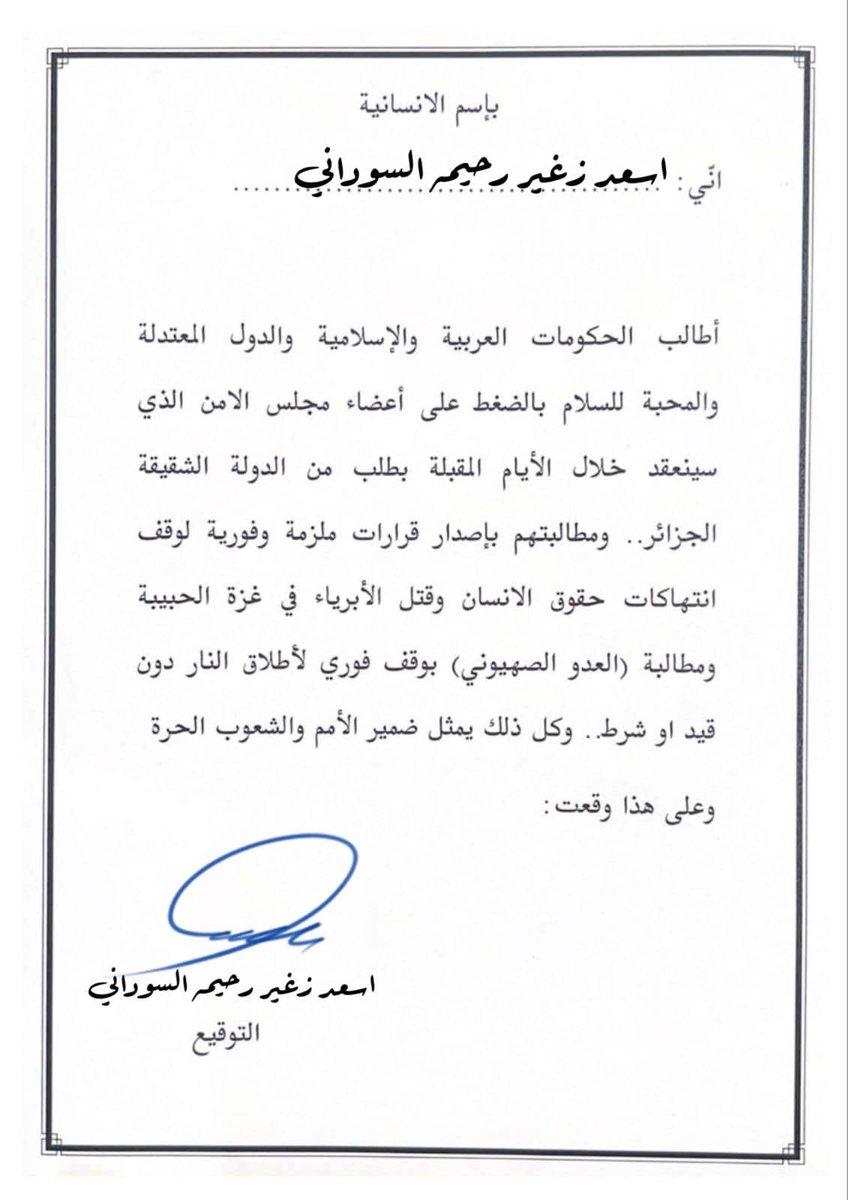 بإسم الانسانية
انّي: اسعد زغير رحيمه السوداني
أطالب الحكومات العربية والإسلامية والدول المعتدلة
والمحبة للسلام بالضغط على أعضاء مجلس الامن الذي
سينعقد خلال الأيام المقبلة بطلب من الدولة الشقيقة
الجزائر.. ومطالبتهم بإصدار قرارات ملزمة وفورية لوقف
انتهاكات حقوق الانسان وقتل الأبرياء في غزة الحبيبة
ومطالبة (العدو الصهيوني) بوقف فوري لأطلاق النار دون
قيد او شرط.. وكل ذلك يمثل ضمير الأمم والشعوب الحرة
وعلى هذا وقعت:
اسعد زغير رحيمه السوداني
التوقيع